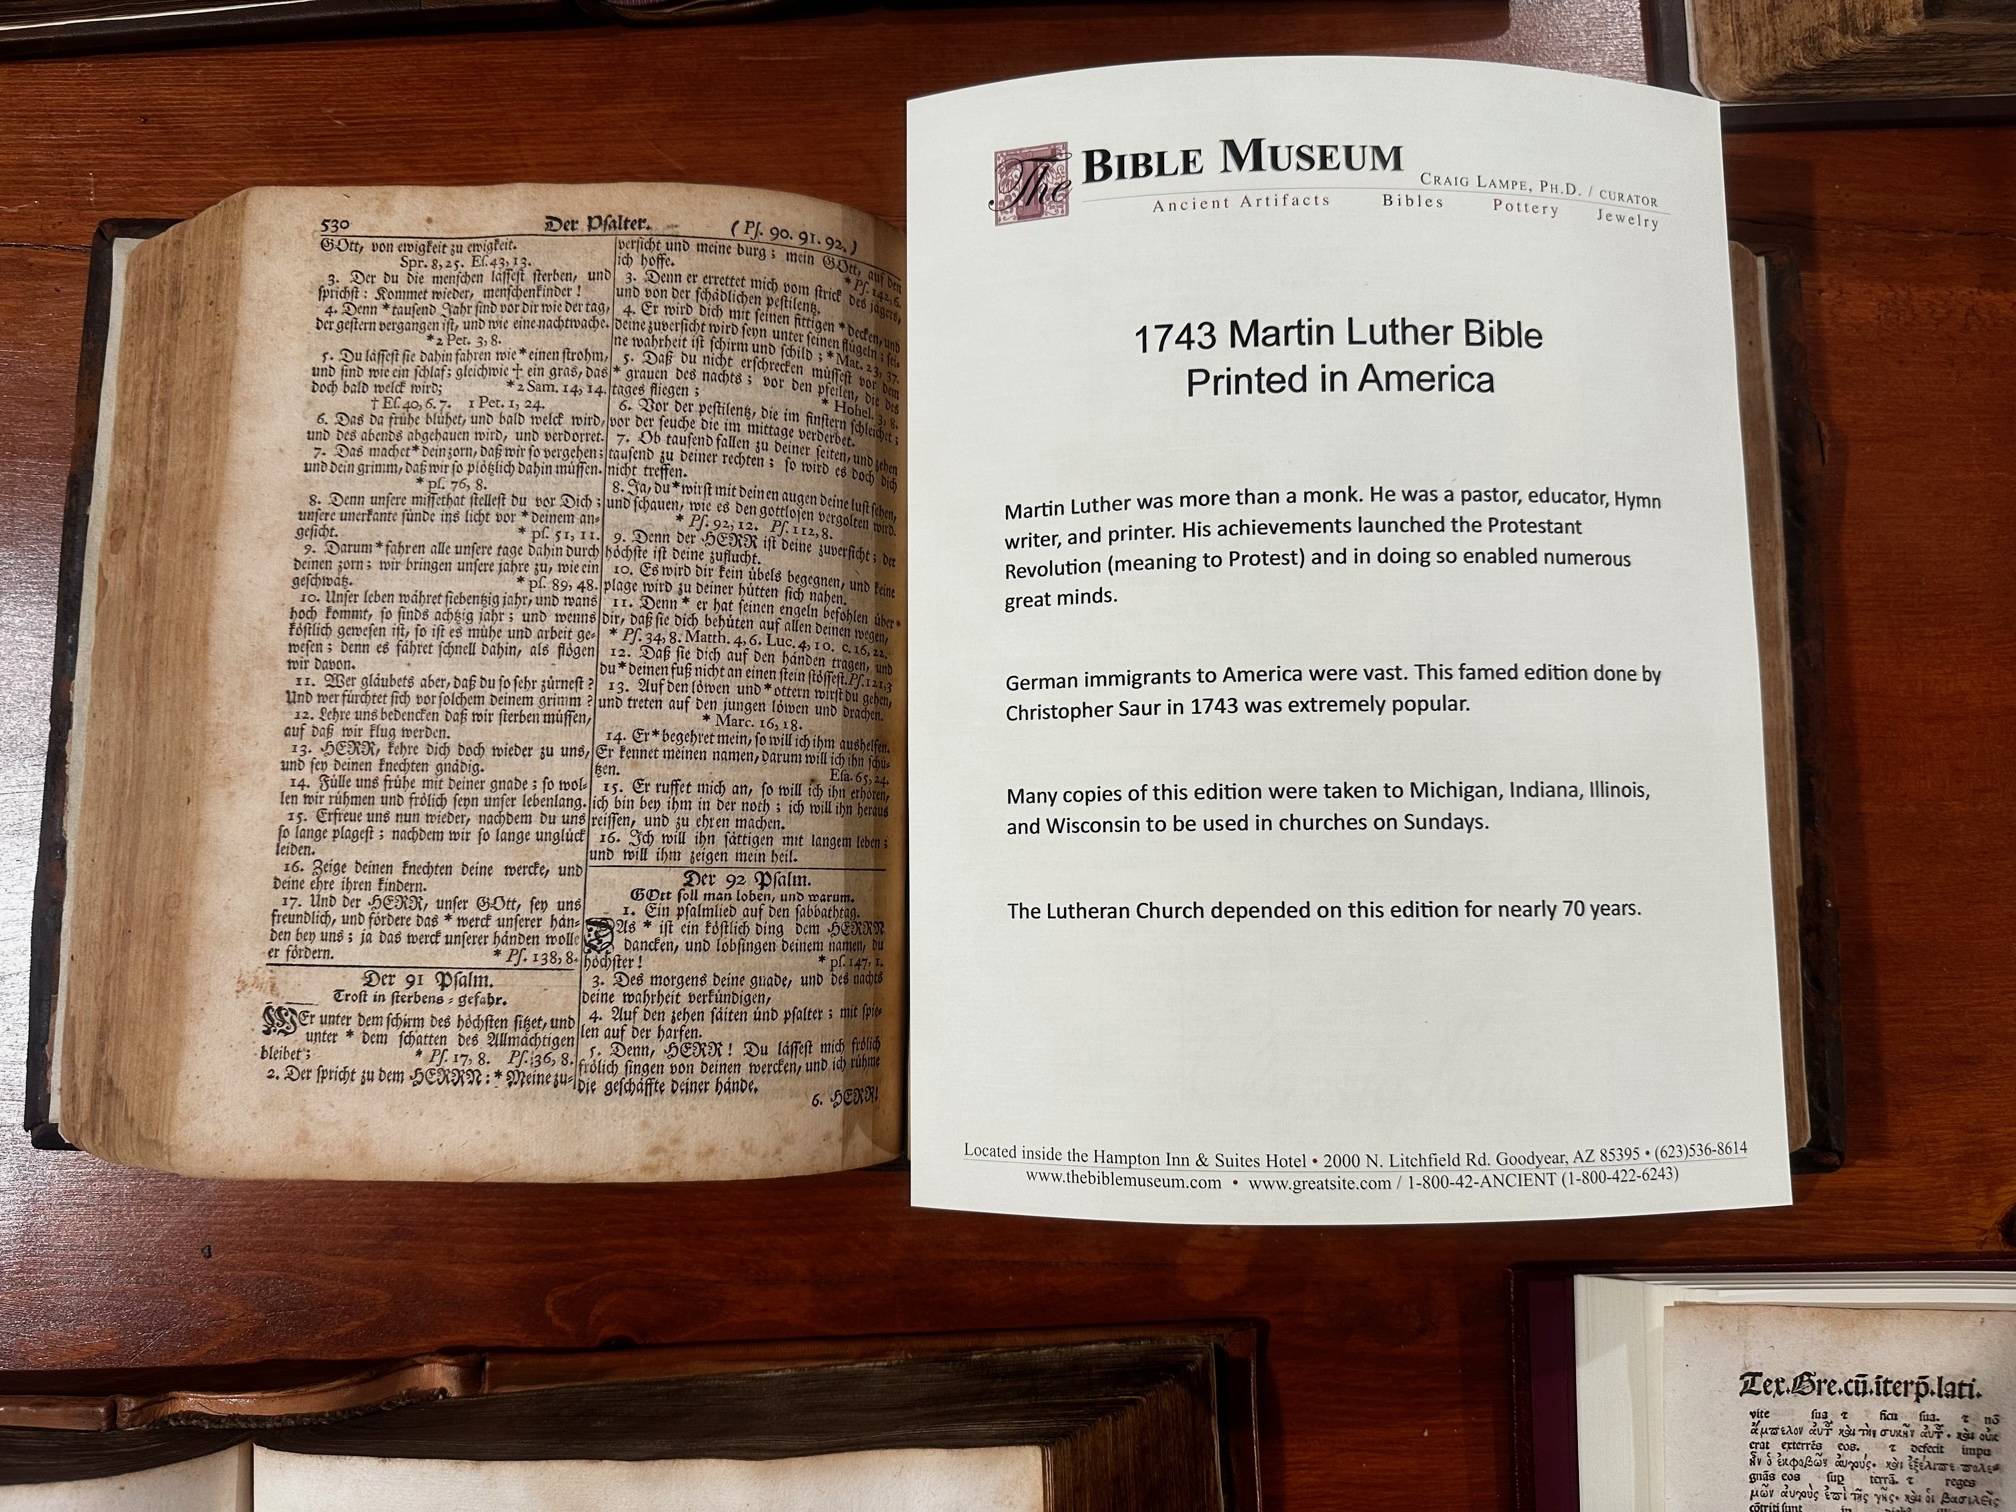 530 Der Psalter. (Ps. 90. 91. 92.)
GOtt, von ewigkeit zu ewigkeit.
Spr. 8, 25. Es. 43, 13.
3. Der du die menschen lässest sterben, und
sprichst: Kommet wieder, menschenkinder!
4. Denn *tausend Jahr sind vor dir wie der tag,
der gestern vergangen ist, und wie eine nachtwache.
*2 Pet. 3, 8.
5. Du lässest sie dahin fahren wie *einen strohm,
und sind wie ein schlaf; gleichwie † ein gras, das
doch bald welck wird; *2 Sam. 14, 14.
† Es. 40, 6. 7. 1 Pet. 1, 24.
6. Das da frühe blühet, und bald welck wird,
und des abends abgehauen wird, und verdorret.
7. Das machet *dein zorn, daß wir so vergehen;
und dein grimm, daß wir so plötzlich dahin müssen.
* ps. 76, 8.
8. Denn unsere missethat stellest du vor Dich;
unsere unerkante sünde ins licht vor *deinem an-
gesicht. * ps. 51, 11.
9. Darum *fahren alle unsere tage dahin durch
deinen zorn; wir bringen unsere jahre zu, wie ein
geschwätz. * ps. 89, 48.
10. Unser leben währet siebentzig jahr, und wans
hoch kommt, so sinds achtzig jahr; und wenns
köstlich gewesen ist, so ist es mühe und arbeit ge-
wesen; denn es fähret schnell dahin, als flögen
wir davon.
11. Wer gläubets aber, daß du so sehr zürnest?
Und wer fürchtet sich vor solchem deinem grimm?
12. Lehre uns bedencken daß wir sterben müssen,
auf daß wir klug werden.
13. HERR, kehre dich doch wieder zu uns,
und sey deinen knechten gnädig.
14. Fülle uns frühe mit deiner gnade; so wol-
len wir rühmen und frölich seyn unser lebenlang.
15. Erfreue uns nun wieder, nachdem du uns
so lange plagest; nachdem wir so lange unglück
leiden.
16. Zeige deinen knechten deine wercke, und
deine ehre ihren kindern.
17. Und der HERR, unser GOtt, sey uns
freundlich, und fördere das * werck unserer hän-
den bey uns; ja das werck unserer händen wolle
er fördern. * Ps. 138, 8.
Der 91 Psalm.
Trost in sterbens-gefahr.
WEr unter dem schirm des höchsten sitzet, und
unter * dem schatten des Allmächtigen
bleibet; * Ps. 17, 8. Ps. 36, 8.
2. Der spricht zu dem HERRN: * Meine zu-
versicht und meine burg; mein GOtt, auf den
ich hoffe. * Ps. 142, 6.
3. Denn er errettet mich vom strick des jägers,
und von der schädlichen pestilentz.
4. Er wird Dich mit seinen fittigen * decken, und
deine zuversicht wird seyn unter seinen flügeln; sei-
ne wahrheit ist schirm und schild; * Mat. 23, 37.
5. Daß du nicht erschrecken müssest vor dem
* grauen des nachts; vor den pfeilen, die des
tages fliegen; * Hohel. 3, 8.
6. Vor der pestilentz, die im finstern schleichet;
vor der seuche die im mittage verderbet.
7. Ob tausend fallen zu deiner seiten, und zehen
tausend zu deiner rechten; so wird es doch dich
nicht treffen.
8. Ja, du *wirst mit deinen augen deine lust sehen,
und schauen, wie es den gottlosen vergolten wird.
* Ps. 92, 12. Ps. 112, 8.
9. Denn der HERR ist deine zuversicht; der
höchste ist deine zuflucht.
10. Es wird dir kein übels begegnen, und keine
plage wird zu deiner hütten sich nahen.
11. Denn * er hat seinen engeln befohlen über
dir, daß sie dich behüten auf allen deinen wegen,
* Ps. 34, 8. Matth. 4, 6. Luc. 4, 10. c. 16, 22.
12. Daß sie dich auf den händen tragen, und
du *deinen fuß nicht an einen stein stössest. Ps. 121, 3
13. Auf den löwen und * ottern wirst du gehen,
und treten auf den jungen löwen und drachen.
* Marc. 16, 18.
14. Er *begehret mein, so will ich ihm aushelfen.
Er kennet meinen namen, darum will ich ihn schü-
tzen. Esa. 65, 24.
15. Er ruffet mich an, so will ich ihn erhören,
ich bin bey ihm in der noth; ich will ihn heraus
reissen, und zu ehren machen.
16. Ich will ihn sättigen mit langem leben;
und will ihm zeigen mein heil.
Der 92 Psalm.
GOtt soll man loben, und warum.
1. Ein psalmlied auf den sabbathtag.
DAs * ist ein köstlich ding dem HERRN
dancken, und lobsingen deinem namen, du
höchster! * ps. 147, 1.
3. Des morgens deine gnade, und des nachts
deine wahrheit verkündigen,
4. Auf den zehen säiten und psalter; mit spie-
len auf der harfen.
5. Denn, HERR! Du lässest mich frölich
frölich singen von deinen wercken, und ich rühme
die geschäffte deiner hände.
6. HERR!
The BIBLE MUSEUM
CRAIG LAMPE, PH.D. / CURATOR
Ancient Artifacts Bibles Pottery Jewelry
1743 Martin Luther Bible
Printed in America
Martin Luther was more than a monk. He was a pastor, educator, Hymn
writer, and printer. His achievements launched the Protestant
Revolution (meaning to Protest) and in doing so enabled numerous
great minds.
German immigrants to America were vast. This famed edition done by
Christopher Saur in 1743 was extremely popular.
Many copies of this edition were taken to Michigan, Indiana, Illinois,
and Wisconsin to be used in churches on Sundays.
The Lutheran Church depended on this edition for nearly 70 years.
Located inside the Hampton Inn & Suites Hotel • 2000 N. Litchfield Rd. Goodyear, AZ 85395 • (623)536-8614
www.thebiblemuseum.com • www.greatsite.com / 1-800-42-ANCIENT (1-800-422-6243)
Tex.Gre.cū.iterp̄.lati.
vite sua τ ficu sua. τ nō
erat exterrēs eos. τ defecit impu
gnās eos sup terrā. τ reges